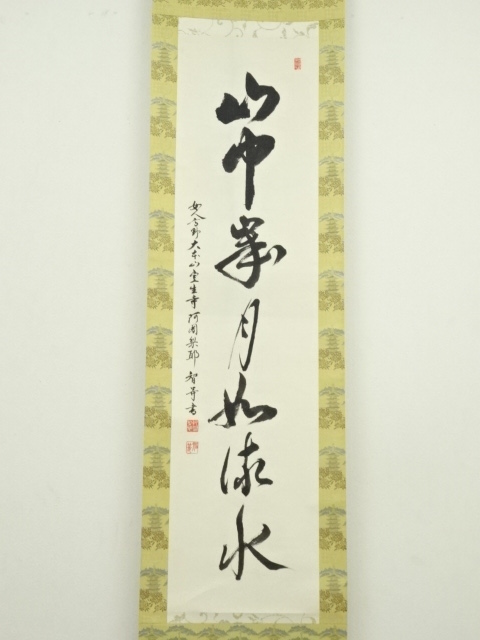 山中歳月如流水
女人高野大本山室生寺 阿闍梨耶 智 書